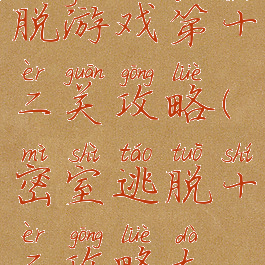 脱游戏第十
èr guān gōng lüè
二关攻略(
mì shì táo tuō shí
密室逃脱十
èr gōng lüè dà
二攻略大